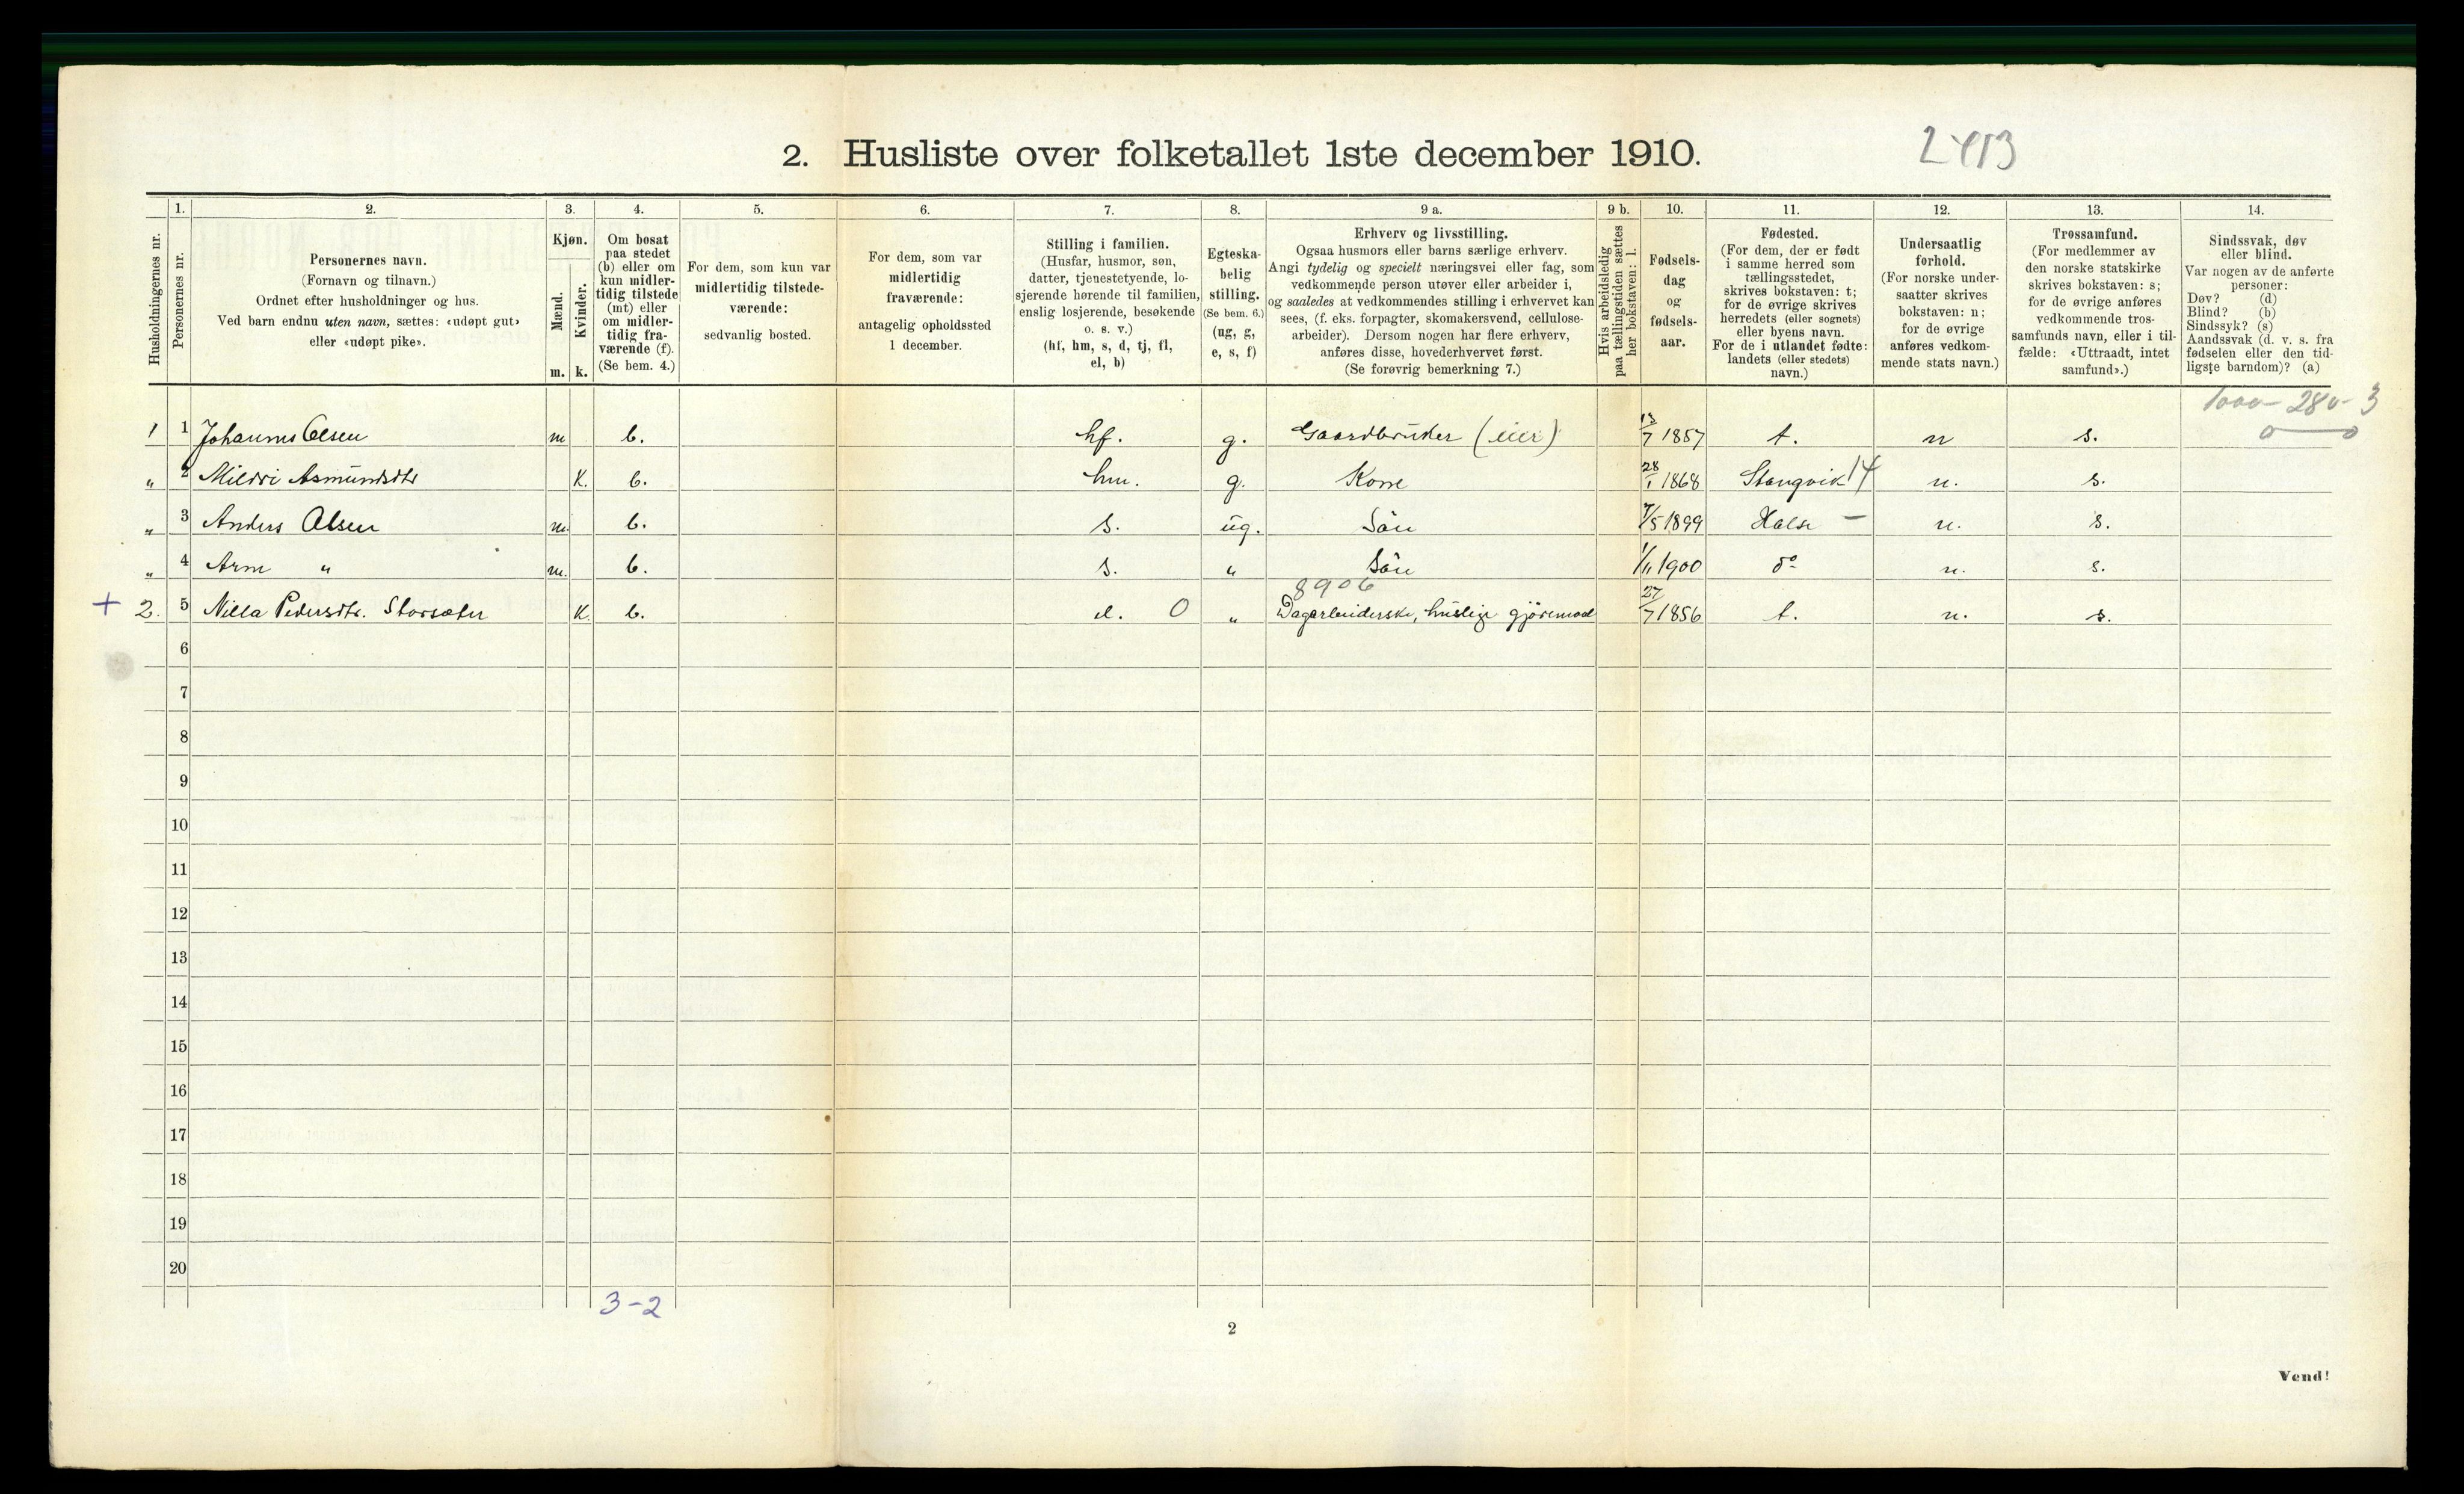 2. Husliste over folketallet 1ste december 1910.
1. 2. 3. 4. 5. 6. 7. 8. 9 a. 9 b. 10. 11. 12. 13. 14.
Husholdningernes nr.
Personernes nr.
Personernes navn.
(Fornavn og tilnavn.)
Ordnet efter husholdninger og hus.
Ved barn endnu uten navn, sættes: «udøpt gut»
eller «udøpt pike».
Kjøn.
Mænd.
Kvinder.
m. k.
Om bosat
paa stedet
(b) eller om
kun midler-
tidig tilstede
(mt) eller
om midler-
tidig fra-
værende (f).
(Se bem. 4.)
For dem, som kun var
midlertidig tilstede-
værende:
sedvanlig bosted.
For dem, som var
midlertidig
fraværende:
antagelig opholdssted
1 december.
Stilling i familien.
(Husfar, husmor, søn,
datter, tjenestetyende, lo-
sjerende hørende til familien,
enslig losjerende, besøkende
o. s. v.)
(hf, hm, s, d, tj, fl,
el, b)
Egteska-
belig
stilling.
(Se bem. 6.)
(ug, g,
e, s, f)
Erhverv og livsstilling.
Ogsaa husmors eller barns særlige erhverv.
Angi tydelig og specielt næringsvei eller fag, som
vedkommende person utøver eller arbeider i,
og saaledes at vedkommendes stilling i erhvervet kan
sees, (f. eks. forpagter, skomakersvend, cellulose-
arbeider). Dersom nogen har flere erhverv,
anføres disse, hovederhvervet først.
(Se forøvrig bemerkning 7.)
Hvis arbeidsledig
paa tællingstiden sættes
her bokstaven: l.
Fødsels-
dag
og
fødsels-
aar.
Fødested.
(For dem, der er født
i samme herred som
tællingsstedet,
skrives bokstaven: t;
for de øvrige skrives
herredets (eller sognets)
eller byens navn.
For de i utlandet fødte:
landets (eller stedets)
navn.)
Undersaatlig
forhold.
(For norske under-
saatter skrives
bokstaven: n;
for de øvrige
anføres vedkom-
mende stats navn.)
Trossamfund.
(For medlemmer av
den norske statskirke
skrives bokstaven: s;
for de øvrige anføres
vedkommende tros-
samfunds navn, eller i til-
fælde: «Uttraadt, intet
samfund».)
Sindssvak, døv
eller blind.
Var nogen av de anførte
personer:
Døv? (d)
Blind? (b)
Sindssyk? (s)
Aandssvak (d. v. s. fra
fødselen eller den tid-
ligste barndom)? (a)
1 1 Johannes Olsen m b. hf. g. Gaardbruker (eier) 13/7 1857 t. n s.
„ 2 Mildri Asmundsdtr K. b. hm. g. Kone 28/1 1868 Stangvik 14 n. s.
„ 3 Anders Olsen m. b. s. ug. Søn 7/5 1899 Halse – n. s.
„ 4 Arne „ m. b. s. „ Søn 1/11 1900 do n. s.
8906
+ 2. 5 Nilla Pedersdtr. Storsæter K. b. el. 0 „ Dagarbeiderske, huslige gjøremaal 27/7 1856 t. n. s.
6
7
8
9
10
11
12
13
14
15
16
17
18
19
20
3-2
2
Vend!